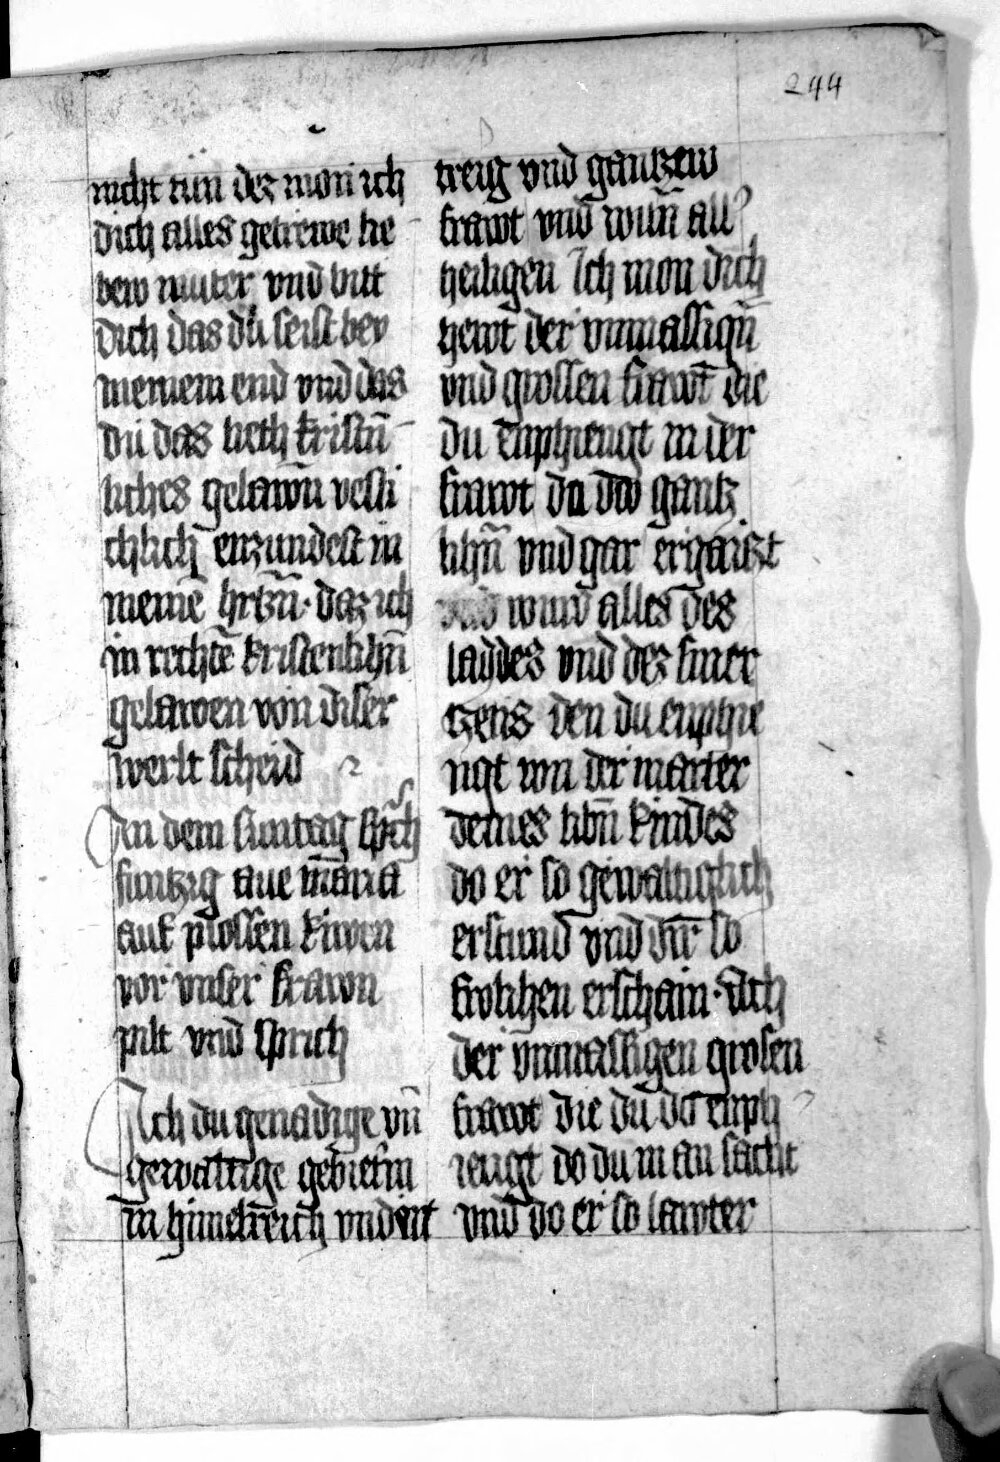 244
nicht tün dez mon ich
dich alles getrewe lie
bew muter vnd bitt
dich das dü seist bey
meinem end vnd das
dü das liecht kristn̄
liches gelawn̄ vesti
chlich enzundest in
meinē hrtzn̄ · daz ich
in rechtē kristenlihn̄
gelawen von diser
werlt scheid
An dem suntag sprich
funtzig aue maria
auf plossen kniwen
vor vnser frawn
pilt vnd sprich
Ich du genadige vn̄
gewaltige
in himelreich vnd ert
treig vnd gantzew
frawt vnd wun̄ all
heiligen Ich mon dich
hewt der vnmassign̄
vnd grossen frawt die
du enphiengt in der
frawt da dw gantz
lihn̄ vnd gar ergaitzt
wurd alles des
laydes vnd dez smer
tzens den du enphie
ngt von der marter
deines libn̄ kindes
do er so gewaltiglich
erstund vnd dir so
frolihen erschain · Ach
der vnmassigen grosen
frawt die du do enph
iengt do du in an sacht
vnd do er so lawter